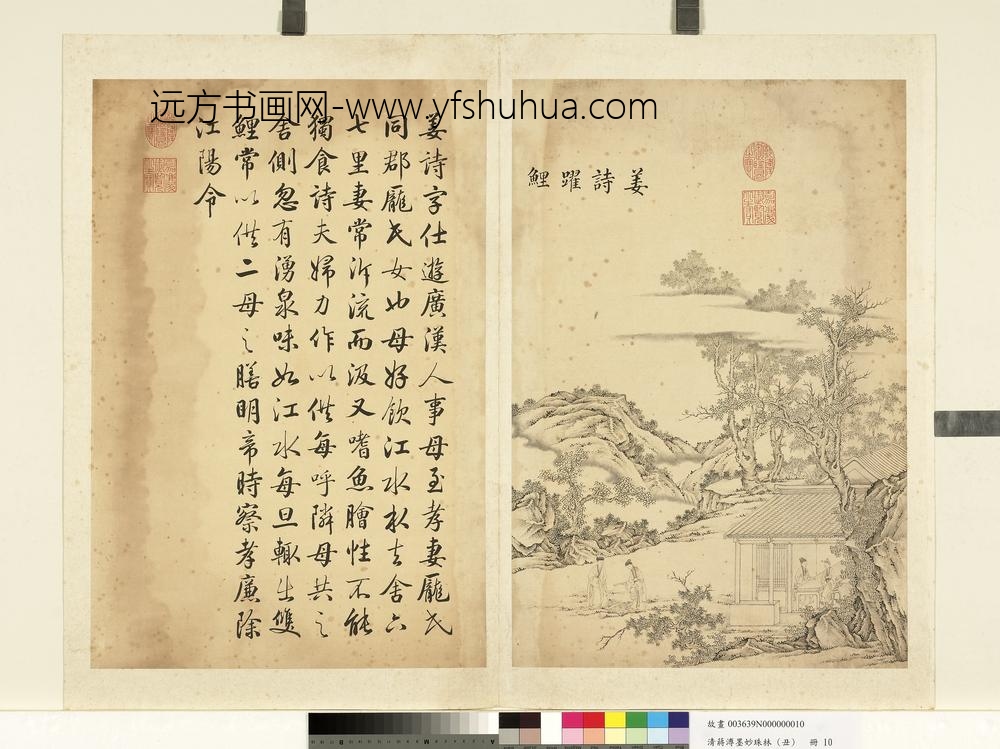 远方书画网-www.yfshuhua.com
姜詩躍鯉
姜詩字仕遊廣漢人事母至孝妻龐氏
同郡龐氏女也母好飲江水水去舍六
七里妻常泝流而汲又嗜魚膾性不能
獨食詩夫婦力作以供每呼隣母共之
舍側忽有湧泉味如江水每旦輒出雙
鯉常以供二母之膳明帝時察孝廉除
江陽令
故畫 003639N000000010
清蔣溥墨妙珠林(丑) 冊 10